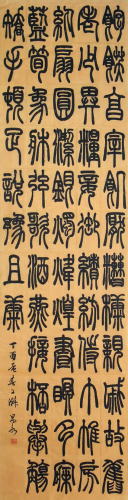 飽飫烹宰飢厭糟糠親戚故舊
老少異糧妾御績紡侍巾帷房
紈扇圓潔銀燭煒煌晝眠夕寐
藍筍象床弦歌酒燕接杯舉觴
矯手頓足悅豫且康
丁酉